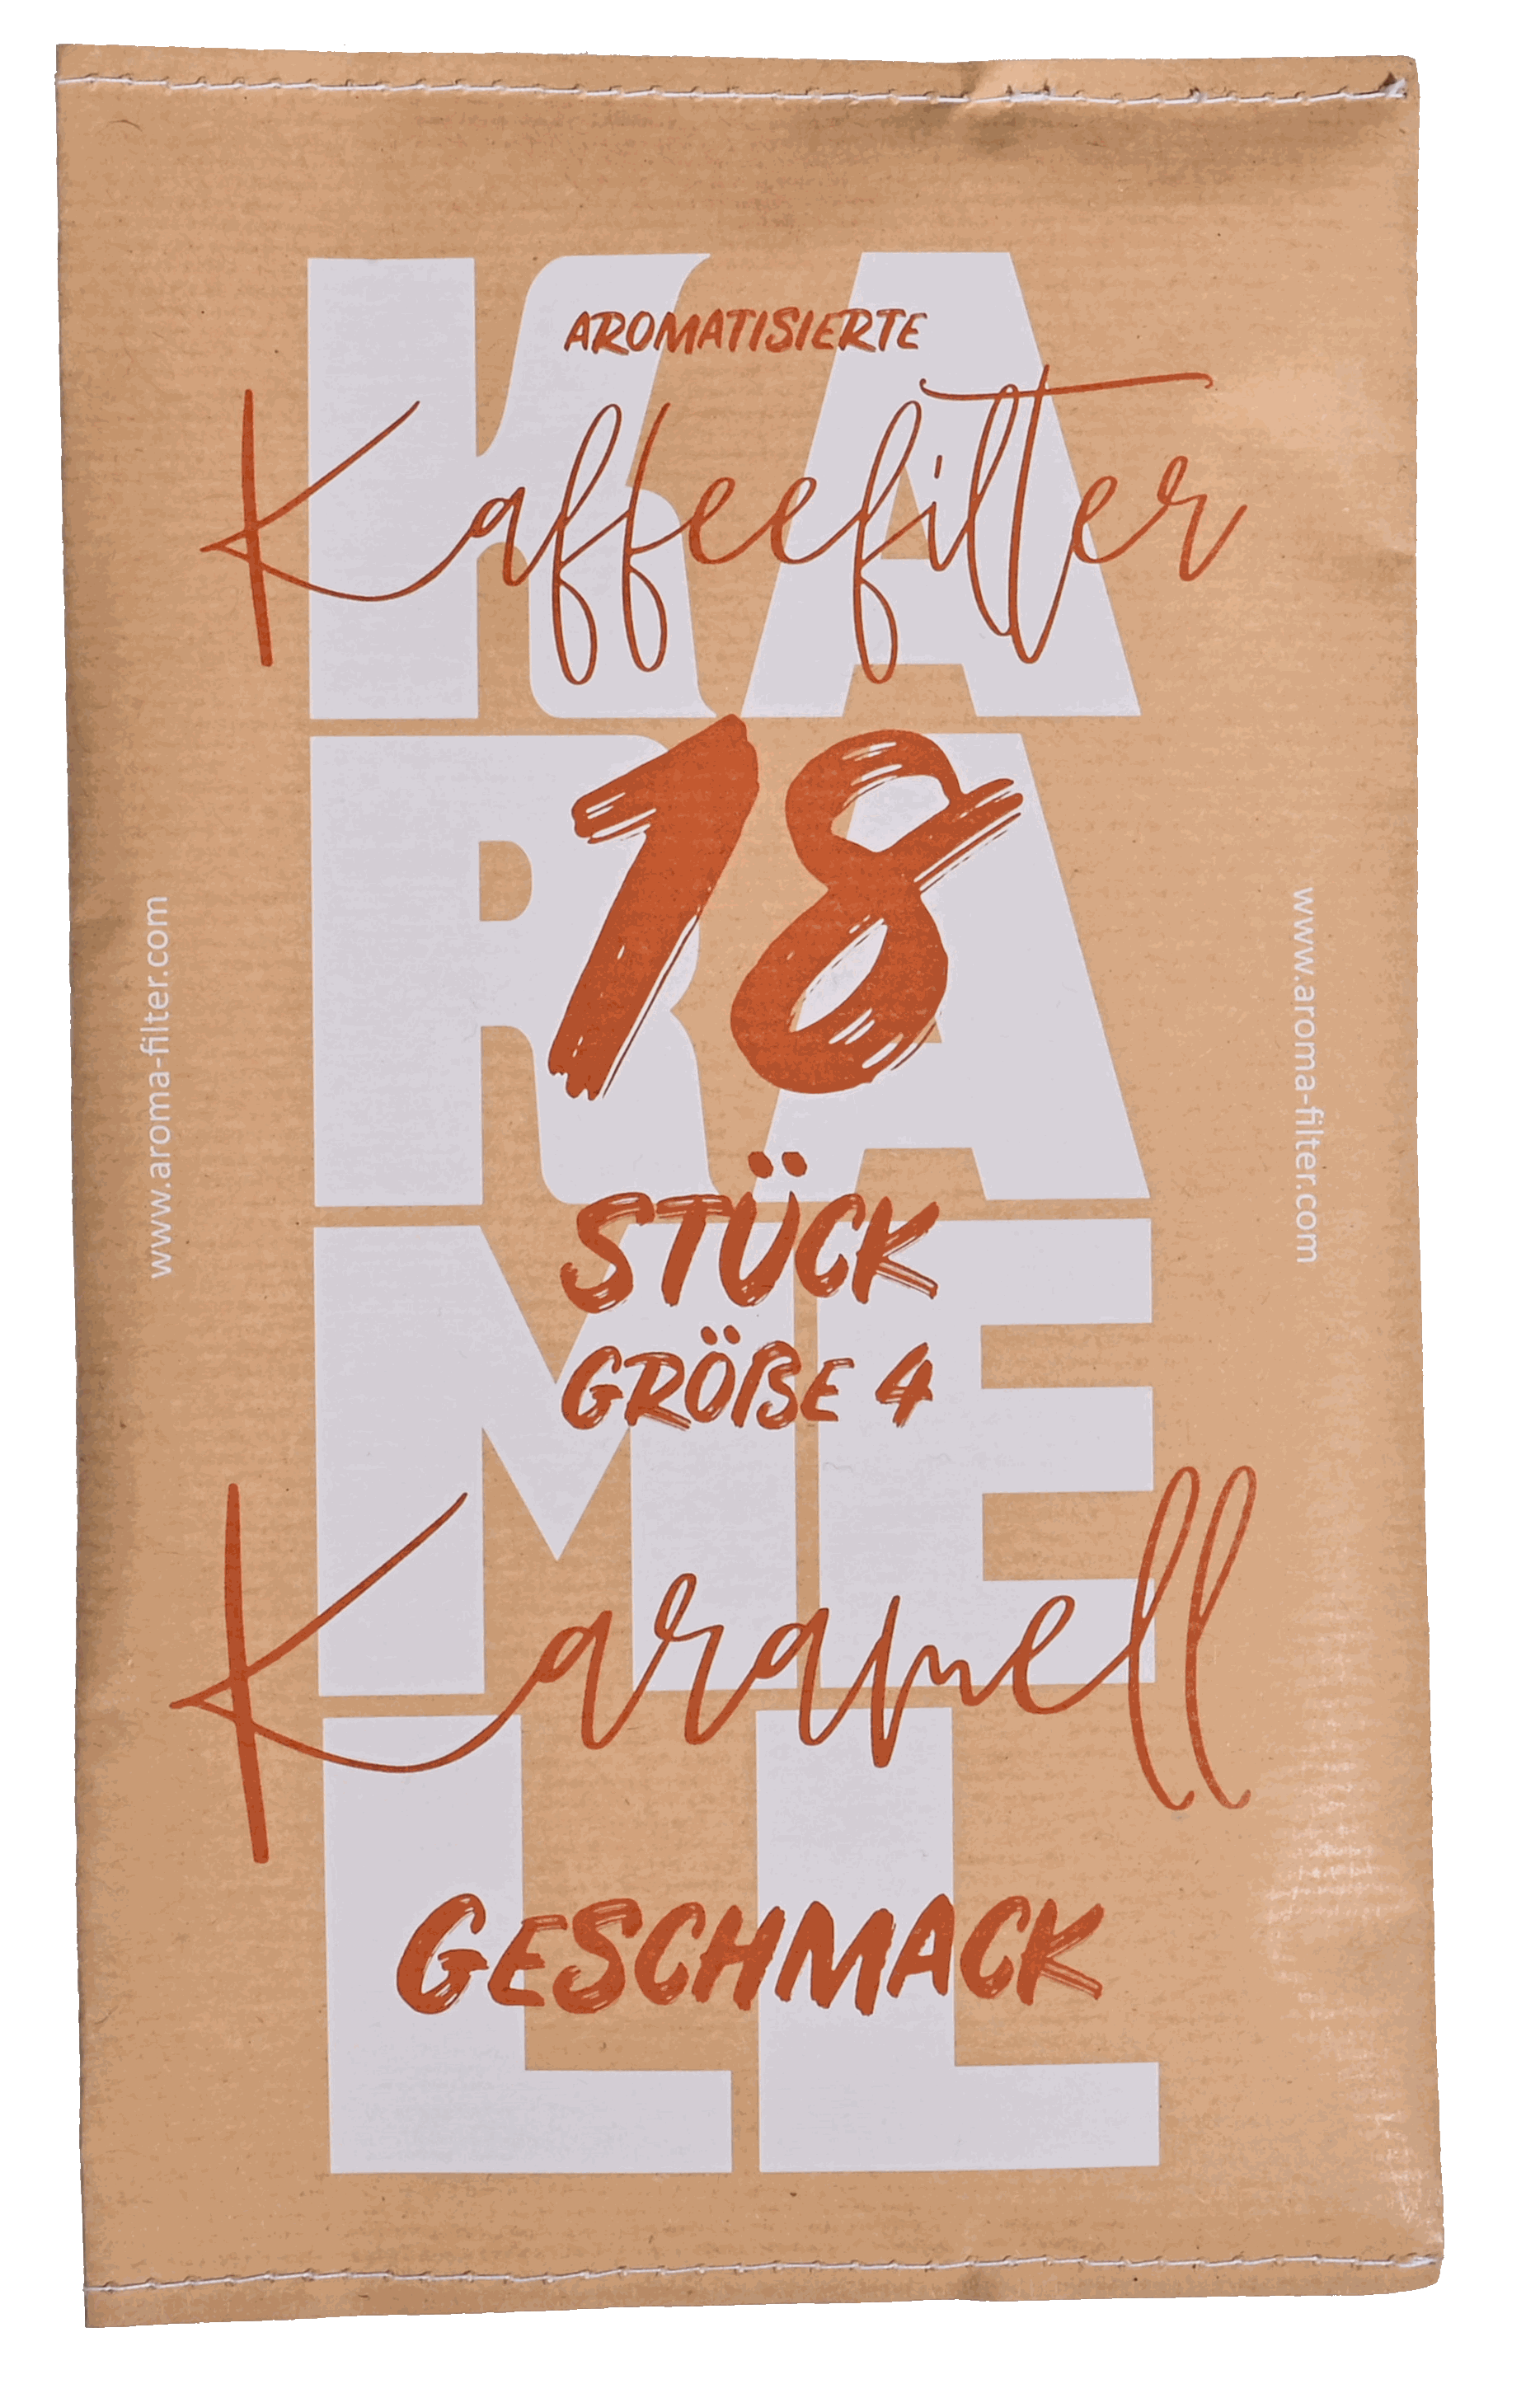 KA
RA
ME
LL
AROMATISIERTE
Kaffeefilter
18
STÜCK
GRÖßE 4
Karamell
GESCHMACK
www.aroma-filter.com
www.aroma-filter.com